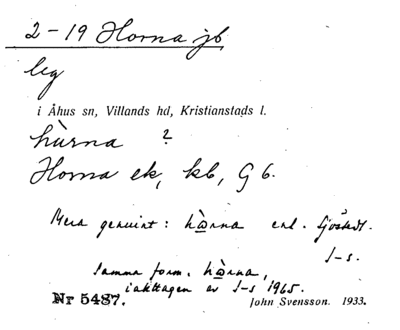 2-19 Horna jb
leg
i Åhus sn, Villands hd, Kristianstads l.
hùrna ?
Horna ek, kb, G 6.
Mera genuint: hòrna enl. Sjöstedt.
J-s.
Samma form, hòrna,
iakttagen av J-s 1965.
Nr 5487. John Svensson. 1933.